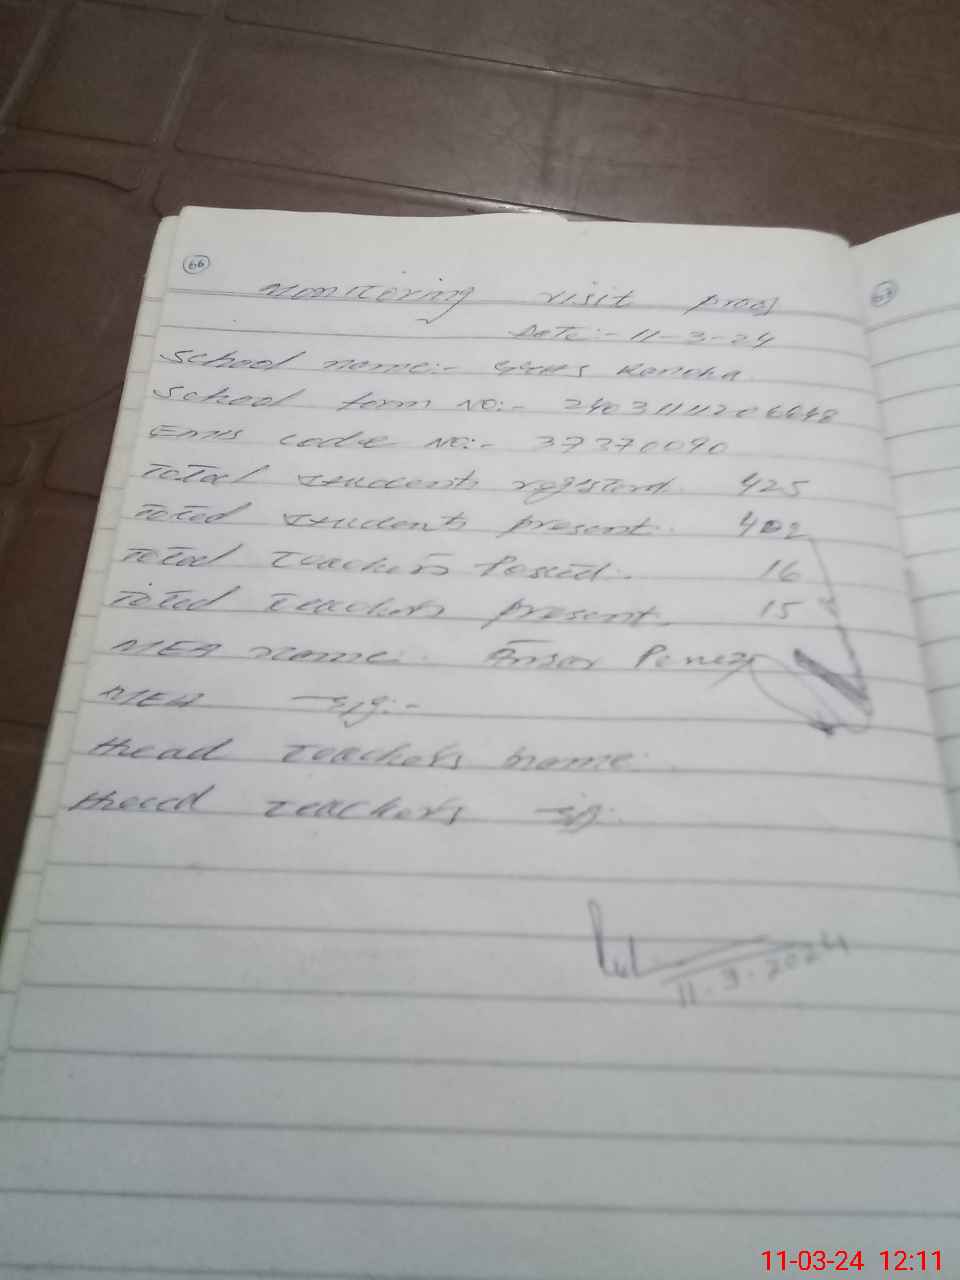 66
Monitoring visit proof
67
Date:- 11-3-24
School name:- GGHS
School form NO:-
Emis code NO:- 37370090
Total students registerd. 425
Toted students present. 402
Toted Teachers Posted:. 16
Toted Teachers present. 15
MEA name:. Ansar
MEA sig:-
Head Teachers name.
Head Teachers sig.
11.3.2024
11-03-24 12:11